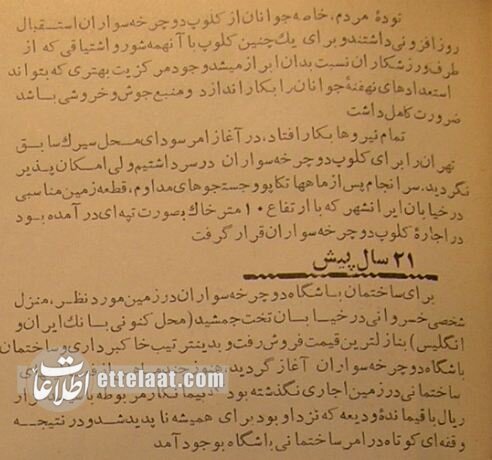 توده مردم، خاصه جوانان از کلوپ دوچرخه سواران استقبال
روزافزونی داشتند و برای یك چنین کلوپ با آنهمه شور و اشتیاقی که از
طرف ورزشکاران نسبت بدان ابراز میشد وجود مرکزیت بهتری که بتواند
استعدادهای نهفتهٔ جوانان را بکار اندازد و منبع جوش و خروشی باشد
ضرورت کامل داشت
تمام نیروها بکار افتاد، در آغاز امر سودای محل سیرك سابق
تهران را برای کلوپ دوچرخه سواران در سر داشتیم ولی امکان پذیر
نگردید. سرانجام پس از ماهها تکاپو و جستجوهای مداوم، قطعه زمین مناسبی
در خیابان ایرانشهر که با ارتفاع ۱۰ متر خاك بصورت تپه ای درآمده بود
در اجارهٔ کلوپ دوچرخه سواران قرار گرفت
۲۱ سال پیش
برای ساختمان باشگاه دوچرخه سواران در زمین مورد نظر، منزل
شخصی خسروانی در خیابان تخت جمشید (محل کنونی بانك ایران و
انگلیس) بنازلترین قیمت فروش رفت و بدینترتیب خاکبرداری و ساختمان
باشگاه دوچرخه سواران آغاز گردید، هنوز
ساختمانی در زمین اجاری نگذشته بود پیمانکار مربوطه با
ریال باقیمانده و دیعه که نزد او بود برای همیشه ناپدید شد و در نتیجه
وقفه ای کوتاه در امر ساختمانی باشگاه بوجود آمد
اطلاعات ettelaat.com